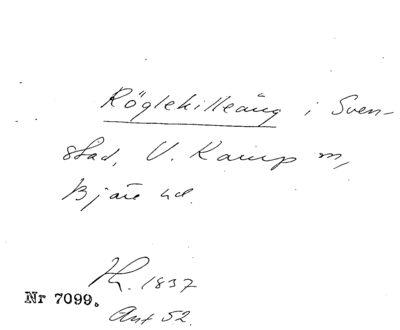 Röglekilleäng i Sven-
stad, V. Karup sn,
Bjäre hd.
Th. 1837
Nr 7099.
Ant 52.